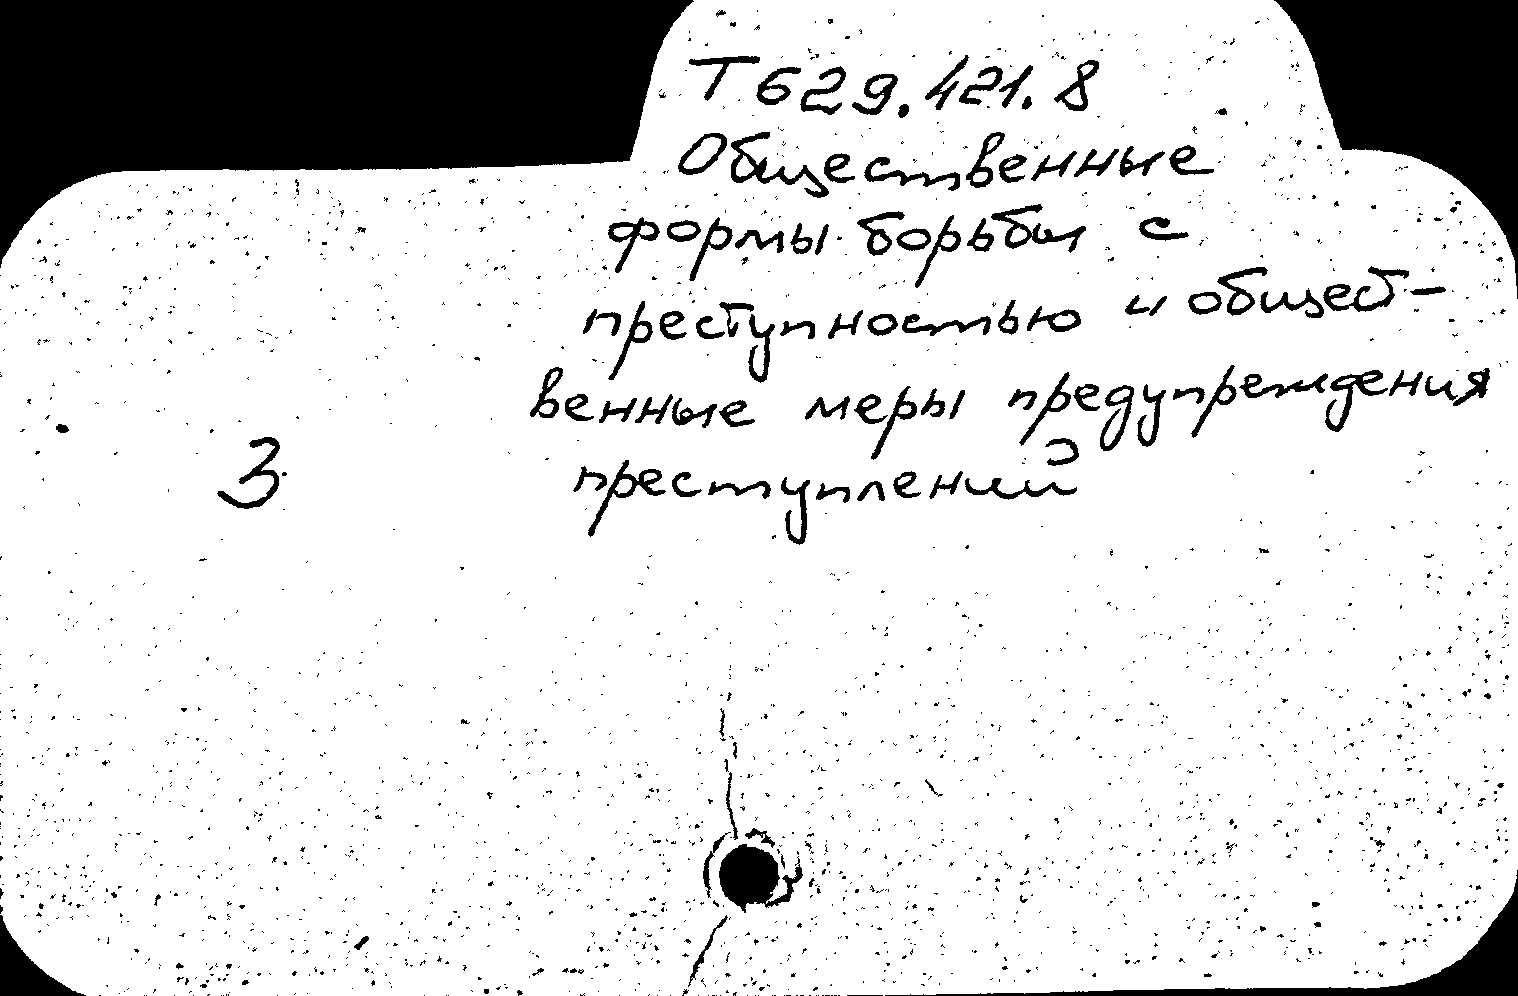 Т629.421.8
Общественные
формы борьбы с
преступностью и общест-
венные меры предупреждения
3 преступлений